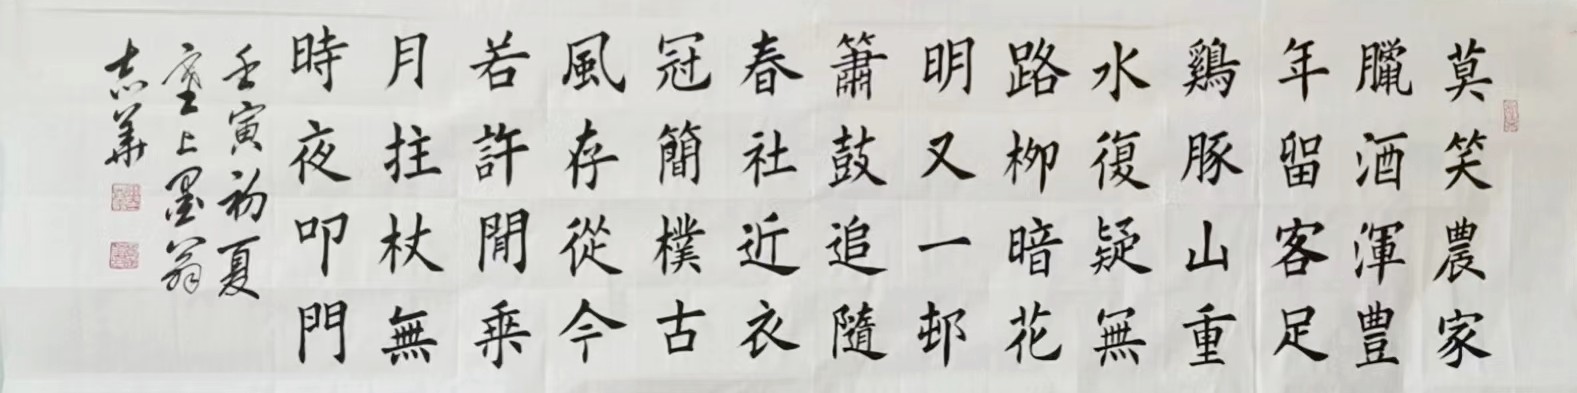 莫笑農家
臘酒渾豊
年留客足
鷄豚山重
水復疑無
路柳暗花
明又一邨
簫鼓追隨
春社近衣
冠簡樸古
風存從今
若許閒乗
月拄杖無
時夜叩門
壬寅初夏
塞上墨翁
志華